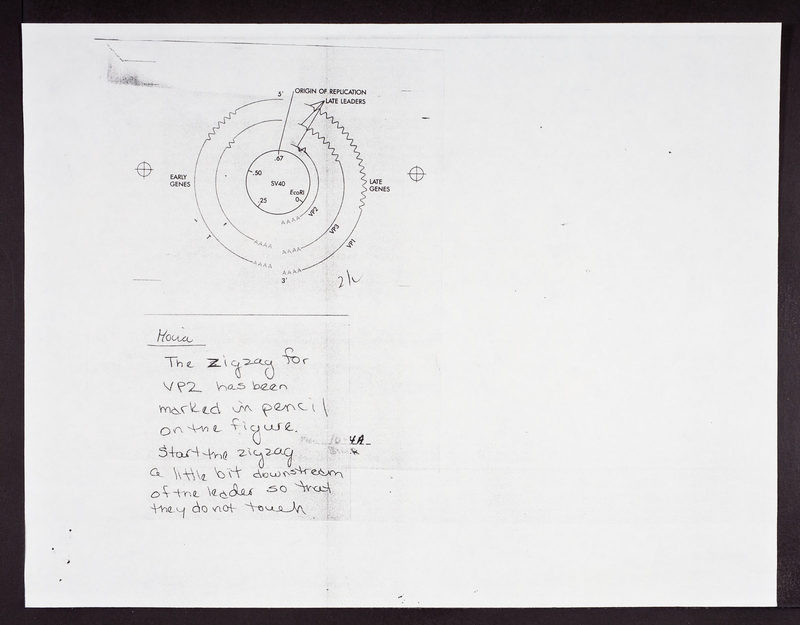 5'
ORIGIN OF REPLICATION
LATE LEADERS
.67
.50
SV40
EcoRI
0
.25
EARLY
GENES
LATE
GENES
VP2
VP3
VP1
t
T
AAAA
AAAA
AAAA
AAAA
AAAA
3'
The zigzag for
VP2 has been
marked in pencil
on the figure.
Start the zigzag
a little bit downstream
of the leader so that
they do not touch
10-4A